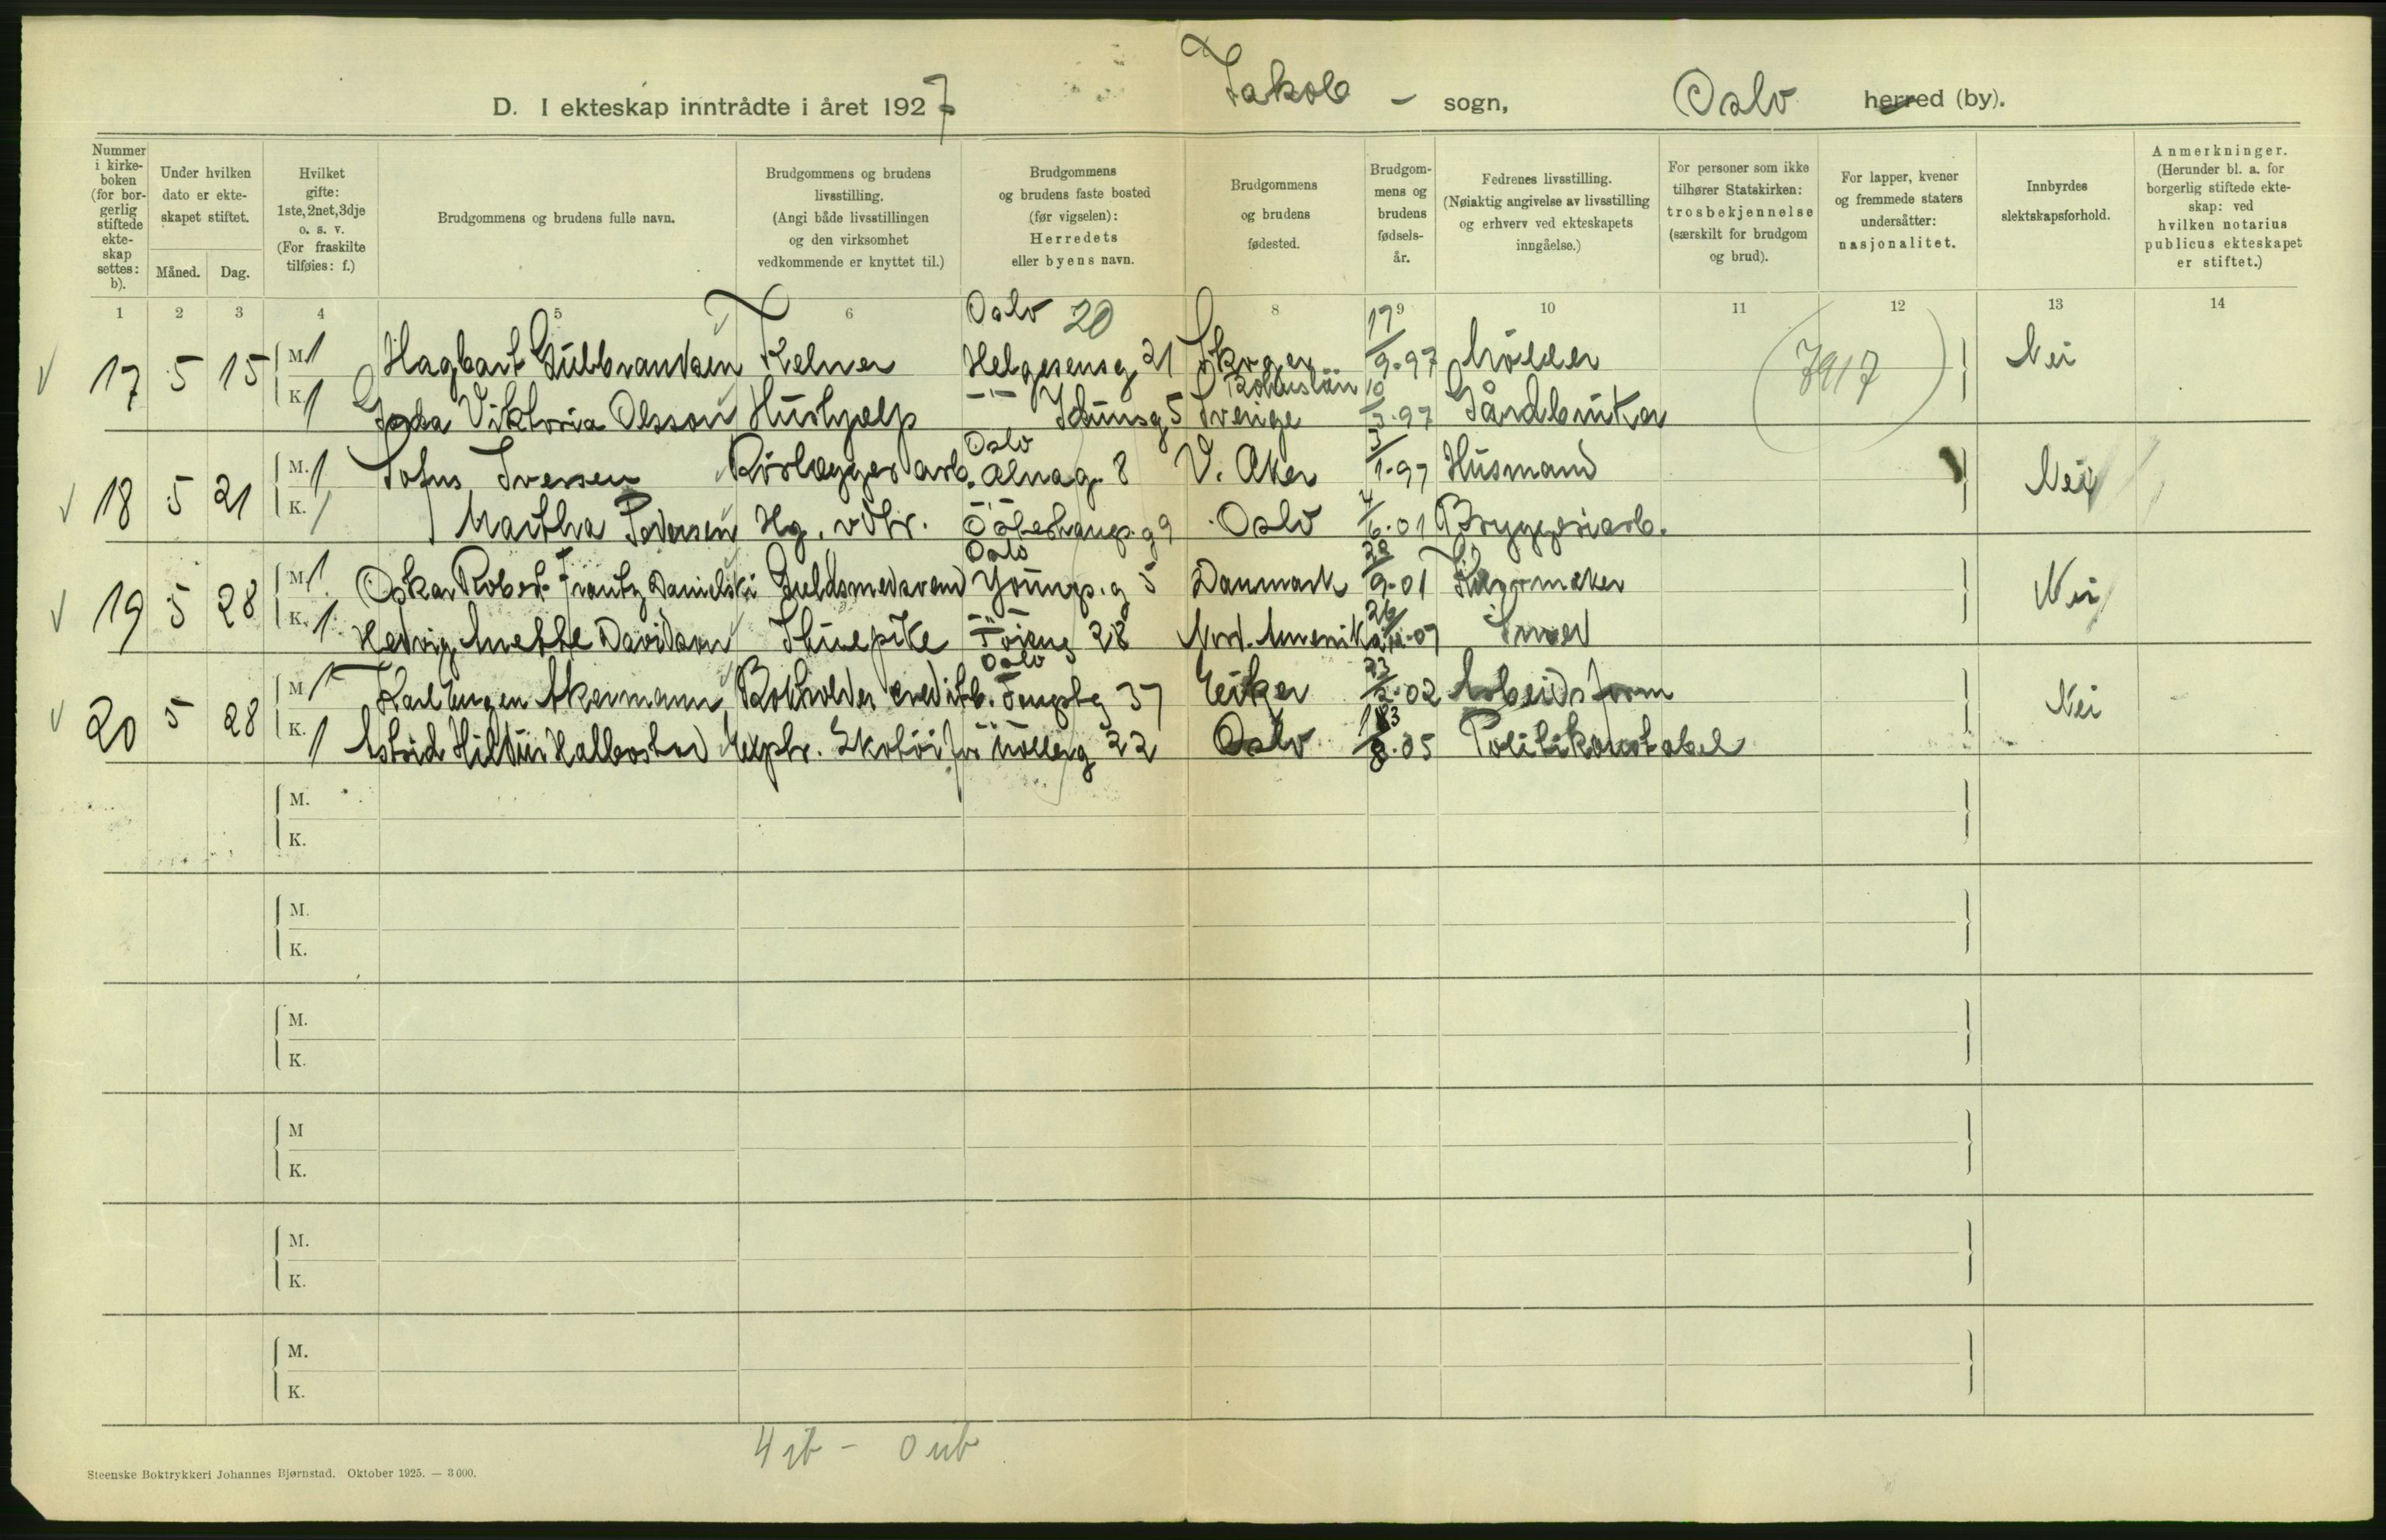 D. I ekteskap inntrådte i året 1927 Jakob - sogn, Oslo herred (by).
Nummer i kirkeboken (for borgerlig stiftede ekteskap settes: b).
Under hvilken dato er ekteskapet stiftet.
Måned. Dag.
Hvilket gifte: 1ste, 2net, 3dje o. s. v. (For fraskilte tilføies: f.)
Brudgommens og brudens fulle navn.
Brudgommens og brudens livsstilling. (Angi både livsstillingen og den virksomhet vedkommende er knyttet til.)
Brudgommens og brudens faste bosted (før vigselen): Herredets eller byens navn.
Brudgommens og brudens fødested.
Brudgommens og brudens fødselsår.
Fedrenes livsstilling. (Nøiaktig angivelse av livsstilling og erhverv ved ekteskapets inngåelse.)
For personer som ikke tilhører Statskirken: trosbekjennelse (særskilt for brudgom og brud).
For lapper, kvener og fremmede staters undersåtter: nasjonalitet.
Innbyrdes slektskapsforhold.
Anmerkninger. (Herunder bl. a. for borgerlig stiftede ekteskap: ved hvilken notarius publicus ekteskapet er stiftet.)
1 2 3 4 5 6 8 9 10 11 12 13 14
Oslo 20
17 5 15 M. 1 Hagbart Gulbrandsen Kelner Helgesensg 21 Skoger 17/9-97 Møller (7917) Nei
K. 1 Viktoria Olsson Hushjælp -"- Idunsg 5 Bohuslän Sverige 10/3-97 Gårdbruker
Oslo
18 5 21 M. 1 Sofus Iversen Rørlæggerarb. Alnag. 8 V. Aker 3/1-97 Husmand Nei
K. 1 Martha Pedersen Hg. v Oslo 01 Bryggeriarb.
Oslo
19 5 28 M. 1 Oskar Robert Frantz Danielski Guldsmedsvend Youngs.g 5 Danmark 9-01 Nei
K. 1 Hedvig Anette Davidson Tøieng 28 Nord. Amerika 26 07 Smed
Oslo
20 5 28 M. 1 Karl Eugen Akermann Bokholder 37 Eiker 23/2-02 Arbeidsform Nei
K. 1 Astrid Hildur Halbostad Ekptr. Skotøi Møllerg 22 Oslo 05 Politikonstabel
M.
K.
M.
K.
M.
K.
M
K.
M.
K.
M.
K.
4 ib - 0 ub
Steenske Boktrykkeri Johannes Bjørnstad. Oktober 1925. — 3000.